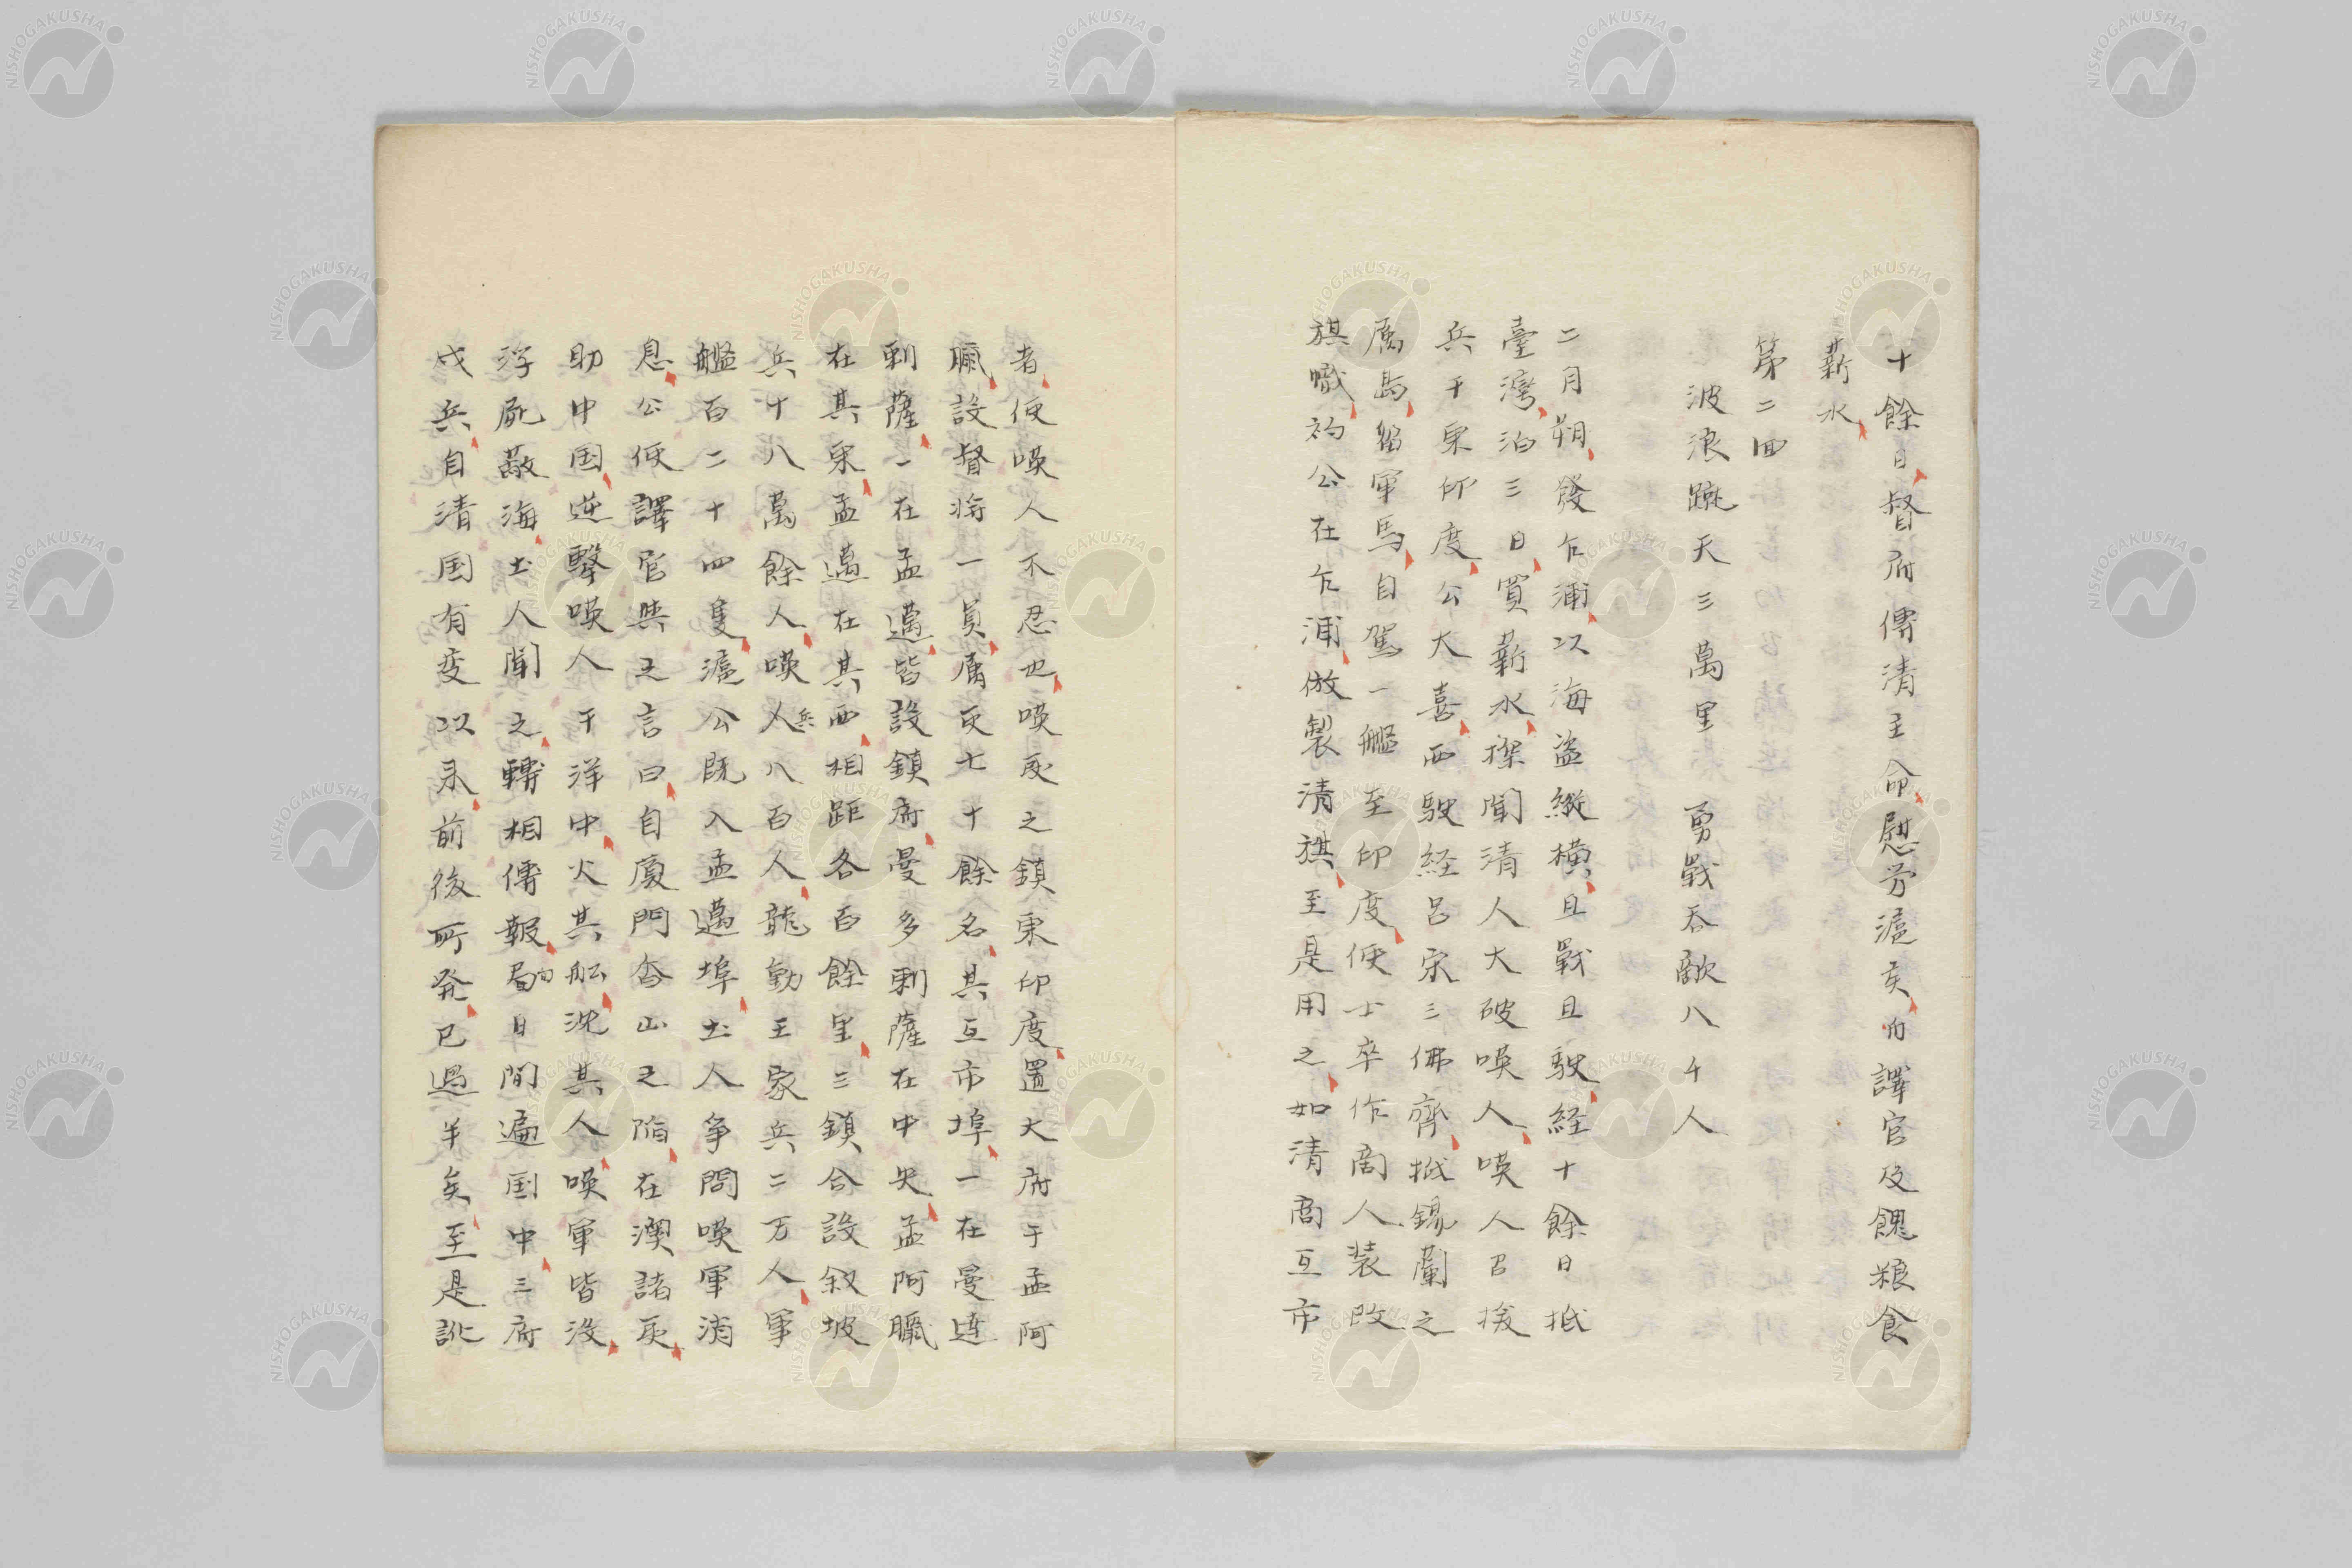 十餘日督府傳清主命慰労滬矦向譯官及餽粮食
薪水
第二回
波浪蹴天三萬里　勇戰呑敵八千人
二月朔發乍浦以海盗縱横且戰且駛経十餘日抵
臺灣泊三日買薪水探聞清人大破暎人暎人召援
兵于東印度公大喜西駛経呂宋三佛齊抵錫蘭之
属島留軍馬自駕一艦至印度使士卒作商人装改
旗幟初公在乍浦倣製清旗至是用之如清商互市
者使暎人不忍也暎夷之鎮東印度置大府于孟阿
臘設督将一員属吏七十餘名其互市埠一在曼達
剌薩一在孟邁皆設鎮府曼多剌薩在中央孟阿臘
在其東孟邁在其西相距各百餘里三鎮合設叙坡
兵十八萬餘人暎人兵八百人龍動王家兵二万人軍
艦百二十四隻滬公既入孟邁埠土人争問暎軍消
息公使譯官與之言曰自廈門香山之陥在澳諸夷
助中国逆擊暎人于洋中火其舩沈其人暎軍皆没
浮屍蔽海土人聞之轉相傳報旬日間遍国中三府
戍兵自清国有变以来前後所発已過半矣至是訛
NISHOGAKUSHA